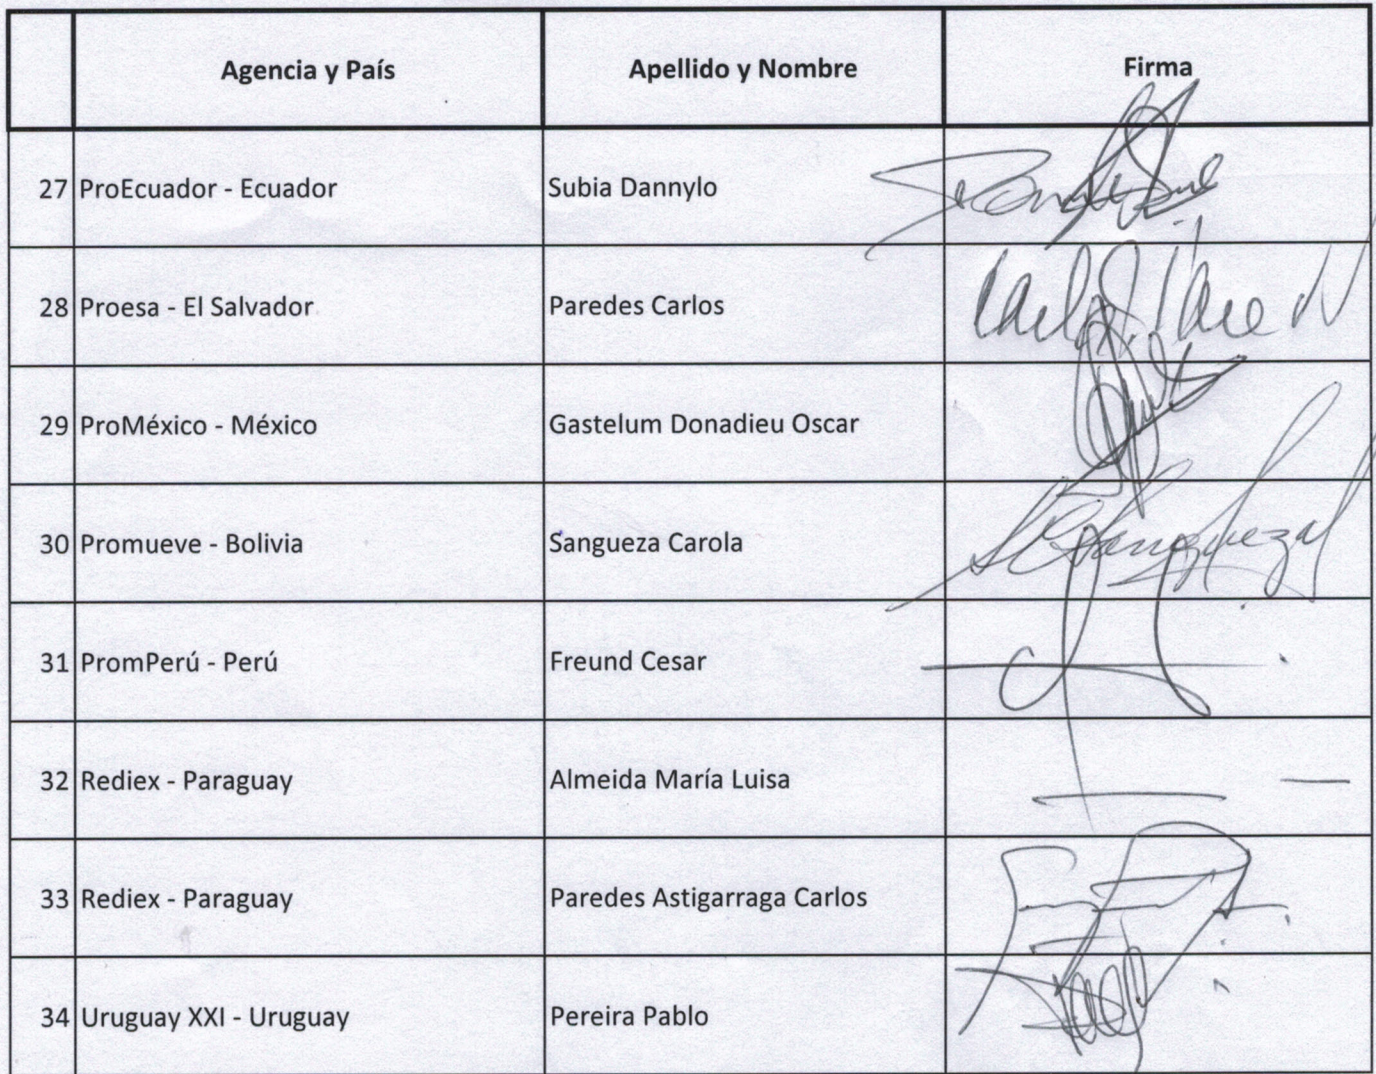 Agencia y País Apellido y Nombre Firma
27 ProEcuador - Ecuador Subia Dannylo
28 Proesa - El Salvador Paredes Carlos
29 ProMéxico - México Gastelum Donadieu Oscar
30 Promueve - Bolivia Sangueza Carola
31 PromPerú - Perú Freund Cesar
32 Rediex - Paraguay Almeida María Luisa
33 Rediex - Paraguay Paredes Astigarraga Carlos
34 Uruguay XXI - Uruguay Pereira Pablo